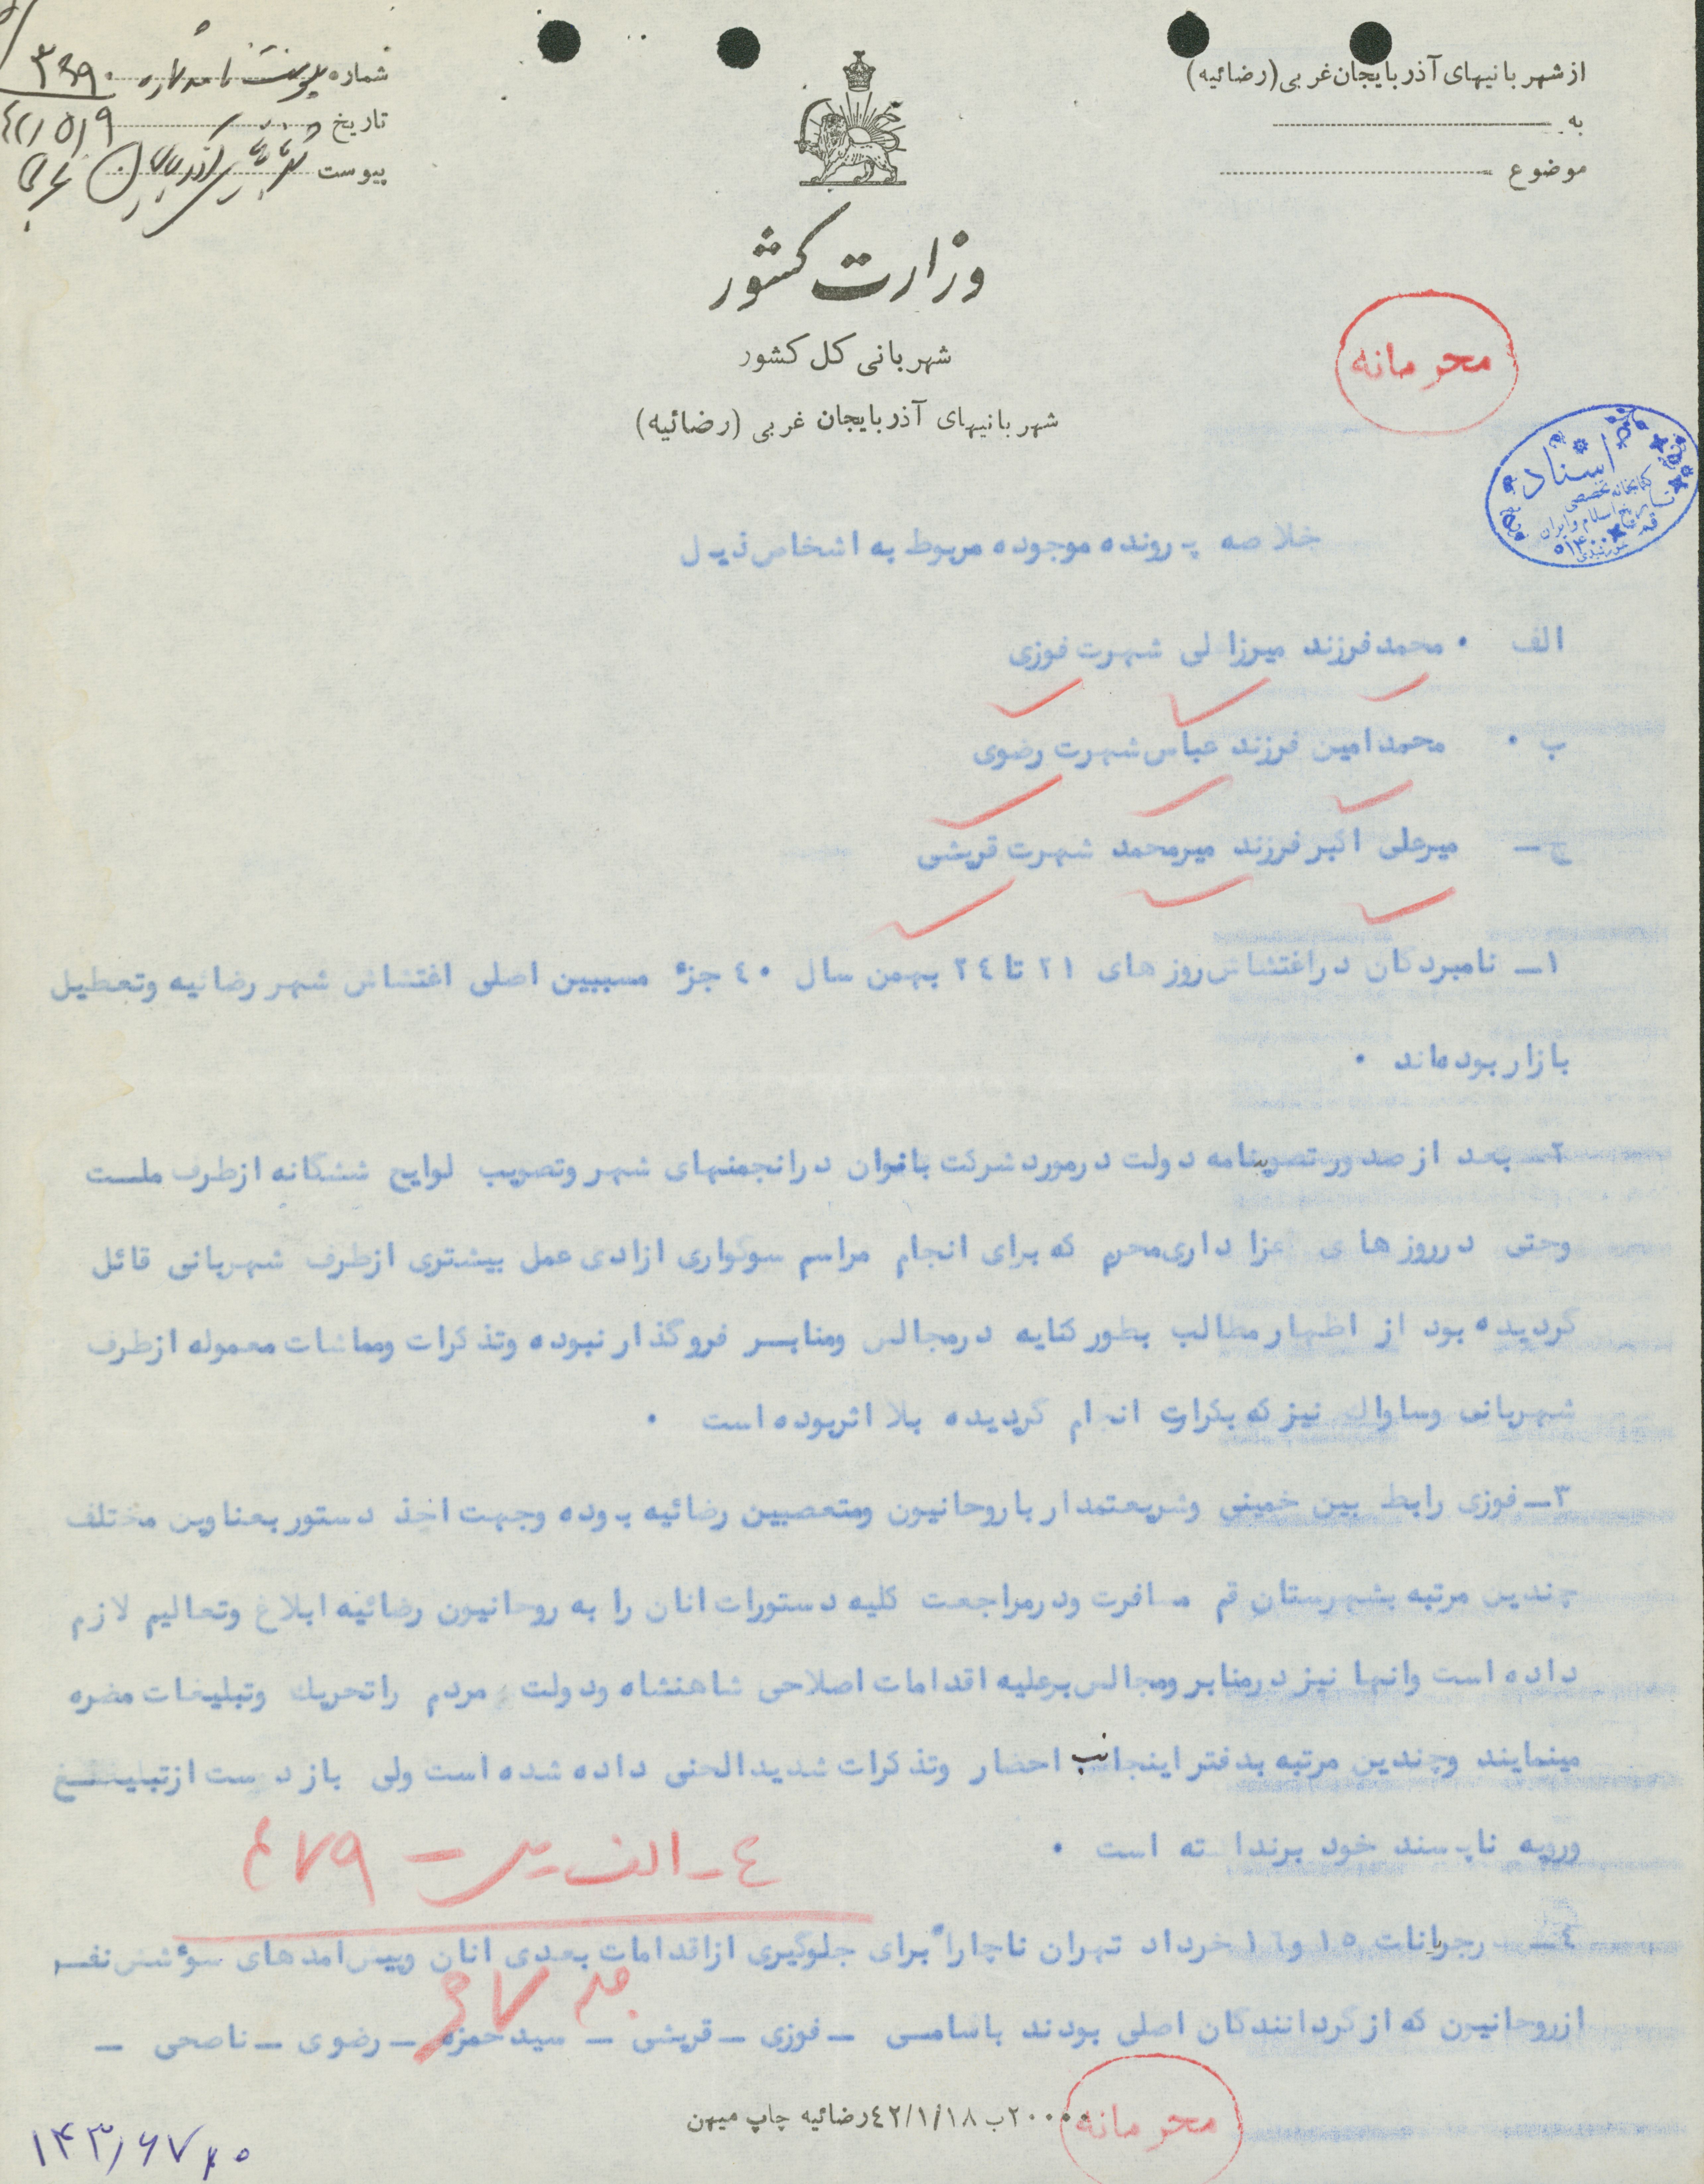 از شهربانیهای آذربایجان غربی (رضائیه)
به
موضوع
شماره پیوست نامه شماره ۳۴۹۰
تاریخ ۴۲/۵/۹
پیوست
وزارت کشور
شهربانی کل کشور
شهربانیهای آذربایجان غربی (رضائیه)
محرمانه
اسناد
کتابخانه تخصصی
تاریخ اسلام و ایران
قم
خلاصه پرونده موجوده مربوط به اشخاص ذیل
الف ۰ محمد فرزند میرزا لی شهرت فوزی
ب ۰ محمدامین فرزند عباس شهرت رضوی
ج ــ میرعلی اکبر فرزند میرمحمد شهرت قریشی
۱ــ نامبردگان دراغتشاش روزهای ۲۱ تا ۲۴ بهمن سال ۴۰ جزء مسببین اصلی اغتشاش شهر رضائیه وتعطیل
بازار بوده‌اند ۰
۲ــ بعد از صدور تصویبنامه دولت درمورد شرکت بانوان درانجمنهای شهر وتصویب لوایح ششگانه ازطرف ملت
وحتی درروزهای عزاداری محرم که برای انجام مراسم سوگواری ازادی عمل بیشتری ازطرف شهربانی قائل
گردیده بود از اظهار مطالب بطور کنایه درمجالس ومنابر فروگذار نبوده وتذکرات ومماشات معموله ازطرف
شهربانی وساواک نیز که بکرات انجام گردیده بلا اثربوده است ۰
۳ــ فوزی رابط بین خمینی وشریعتمدار باروحانیون ومتعصبین رضائیه بوده وجهت اخذ دستور بعناوین مختلف
چندین مرتبه بشهرستان قم مسافرت ودرمراجعت کلیه دستورات انان را به روحانیون رضائیه ابلاغ وتعالیم لازم
داده است وانها نیز درمنابر ومجالس برعلیه اقدامات اصلاحی شاهنشاه ودولت مردم راتحریک وتبلیغات مضره
مینمایند وچندین مرتبه بدفتر اینجانب احضار وتذکرات شدیدالحنی داده شده است ولی باز دست ازتبلیغ
ورویه ناپسند خود برنداشته است ۰
۴ــ الف ــ ۴۷۹
۴ــ درجریانات ۱۵ و۱۶ خرداد تهران ناچاراً برای جلوگیری ازاقدامات بعدی انان وپیش‌امدهای سوء شش نفر
ازروحانیون که از گردانندگان اصلی بودند باسامی ــ فوزی ــ قریشی ــ سیدحمزه ــ رضوی ــ ناصحی ــ
محرمانه
۲۰۰۰۰ب ۴۲/۱/۱۸ رضائیه چاپ میهن
۱۴۳/۶۷۲۰